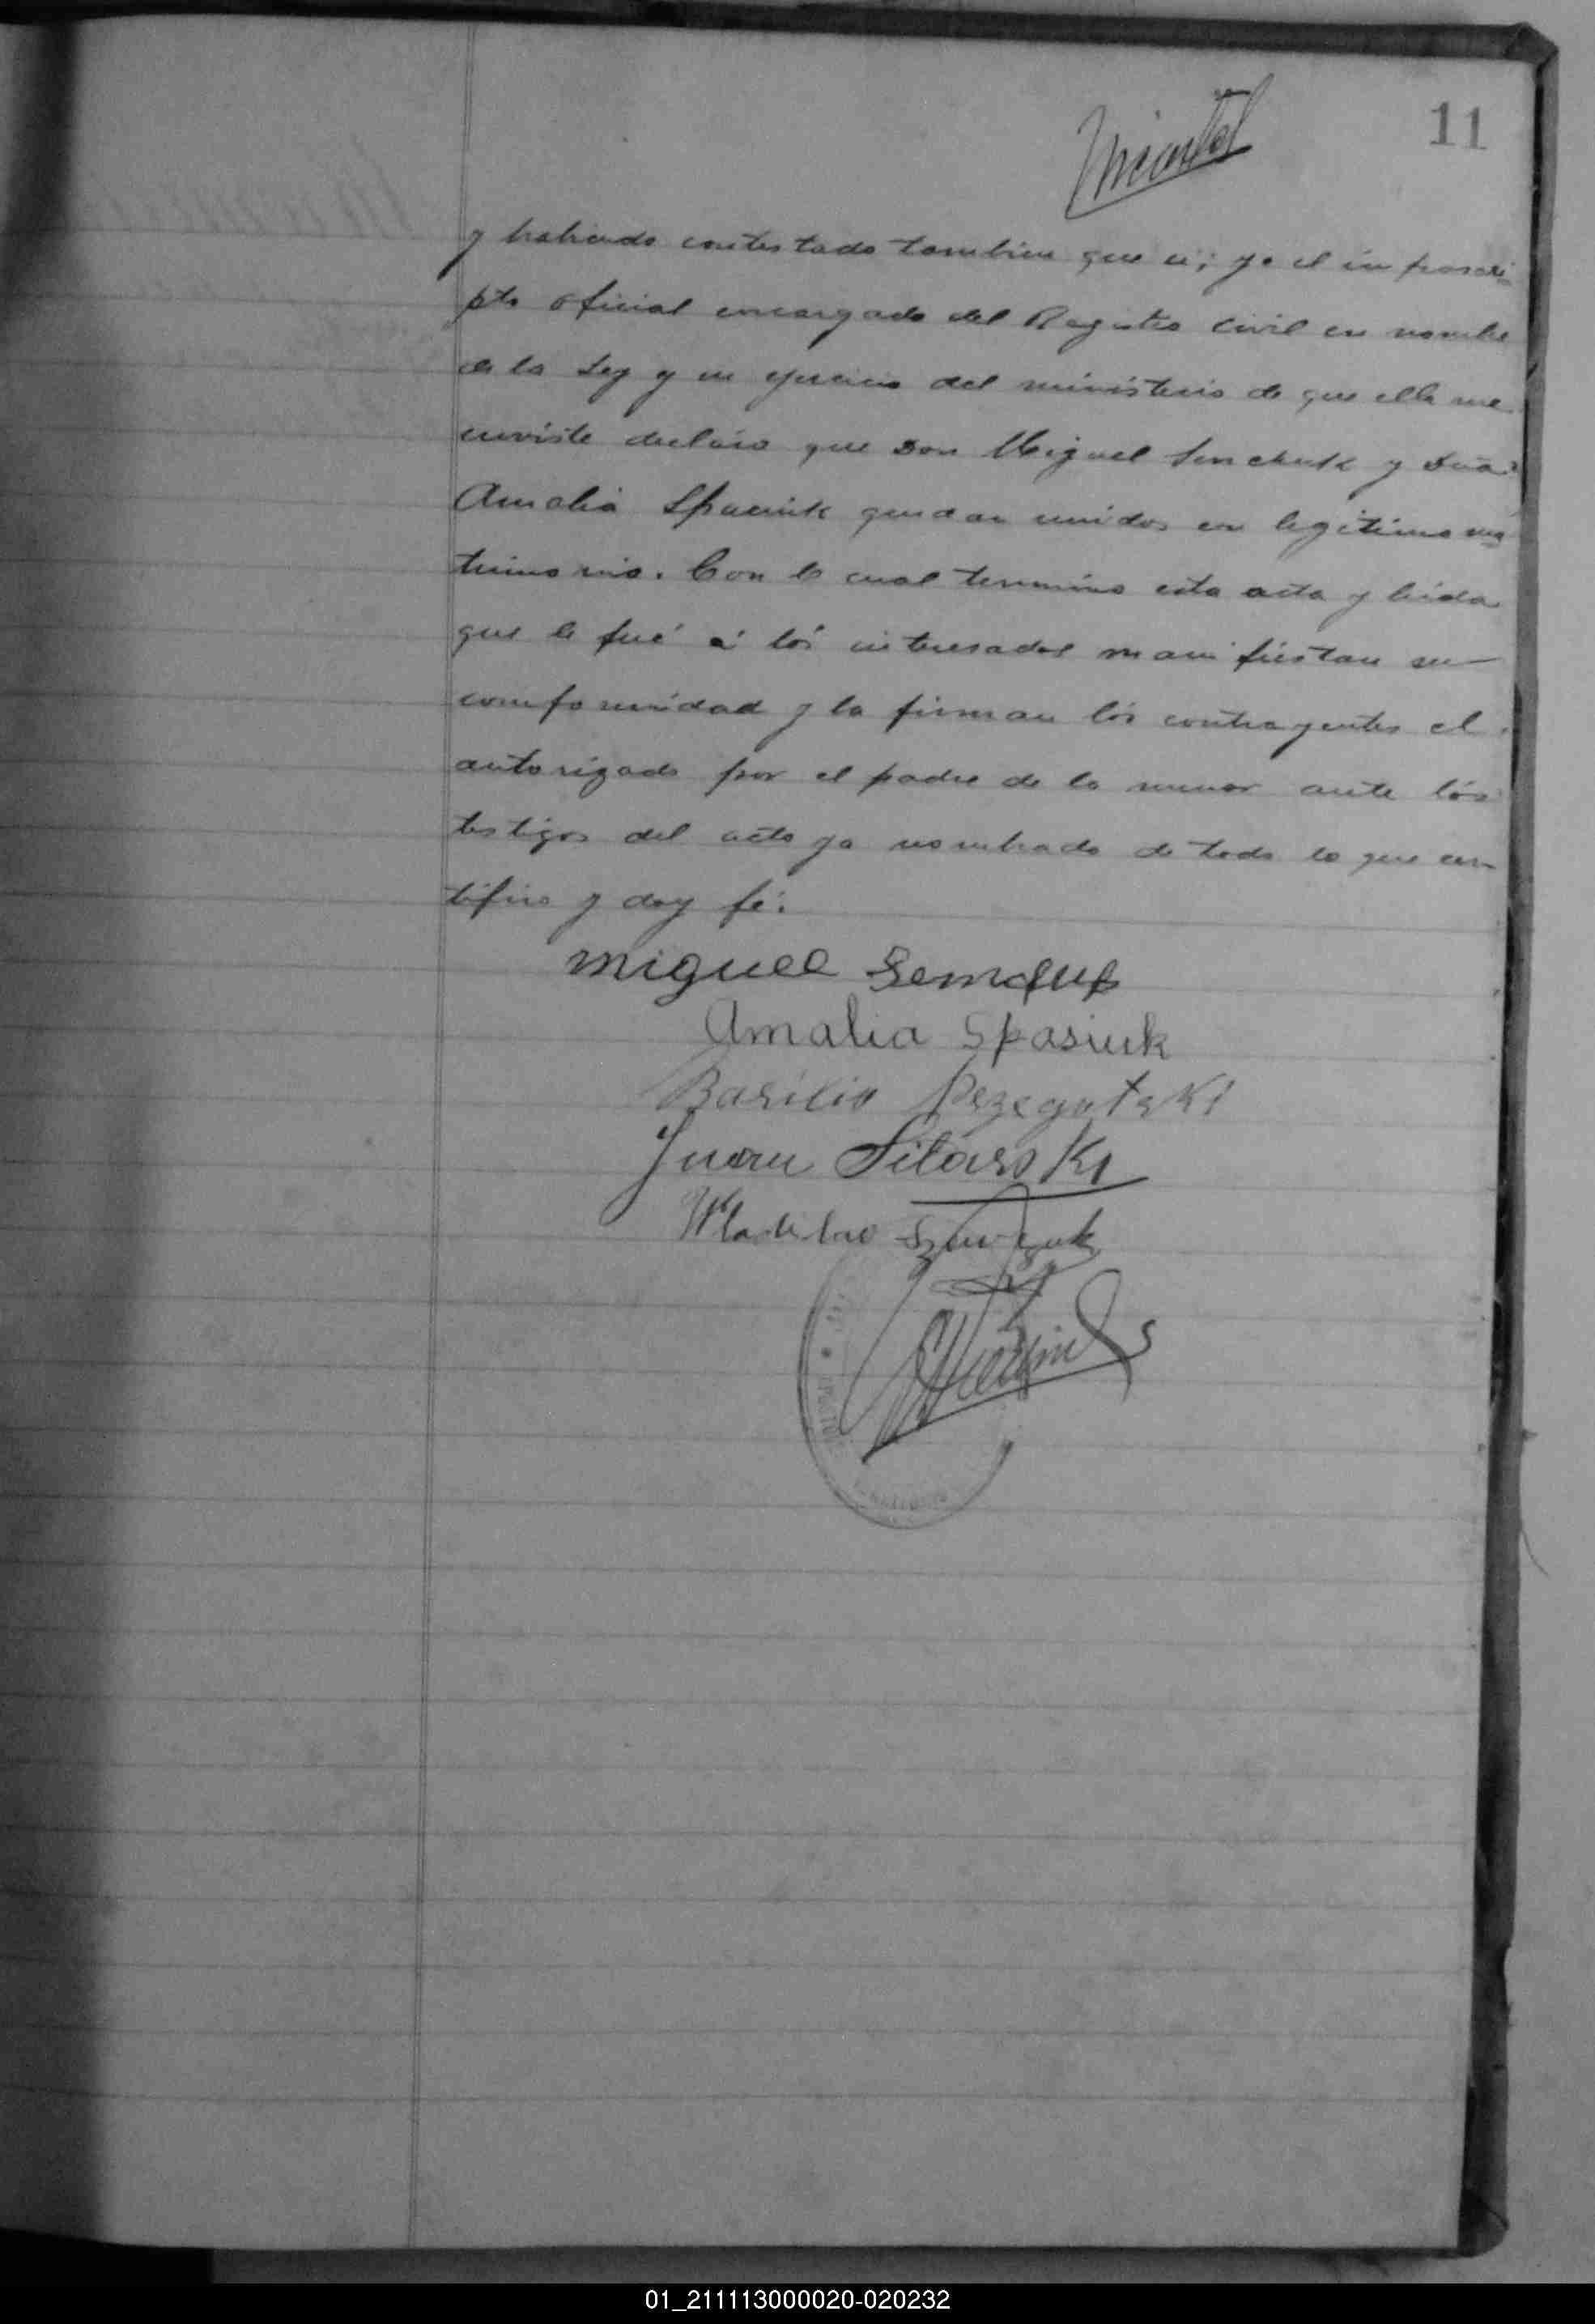 11
y habiendo contestado tambien que si; yo el infrascri
pto oficial encargado del Registro Civil en nombre
de la Ley y en ejercicio del ministerio de que ella me
enviste declaro que Don Miguel Senchuk y Doña
Amalia Spaciuk quedan unidos en legitimo ma
trimonio. Con lo cual termino esta acta y leida
que le fué á los interesados manifiestan su
comformidad y la firman los contrayentes el
autorizado por el padre de la menor ante los
testigos del acto ya nombrado de todo lo que cer
tifico y doy fé.
Miguel
Amalia Spasiuk
Basilio
Juan Sitarski
Wladislao
01_211113000020-020232